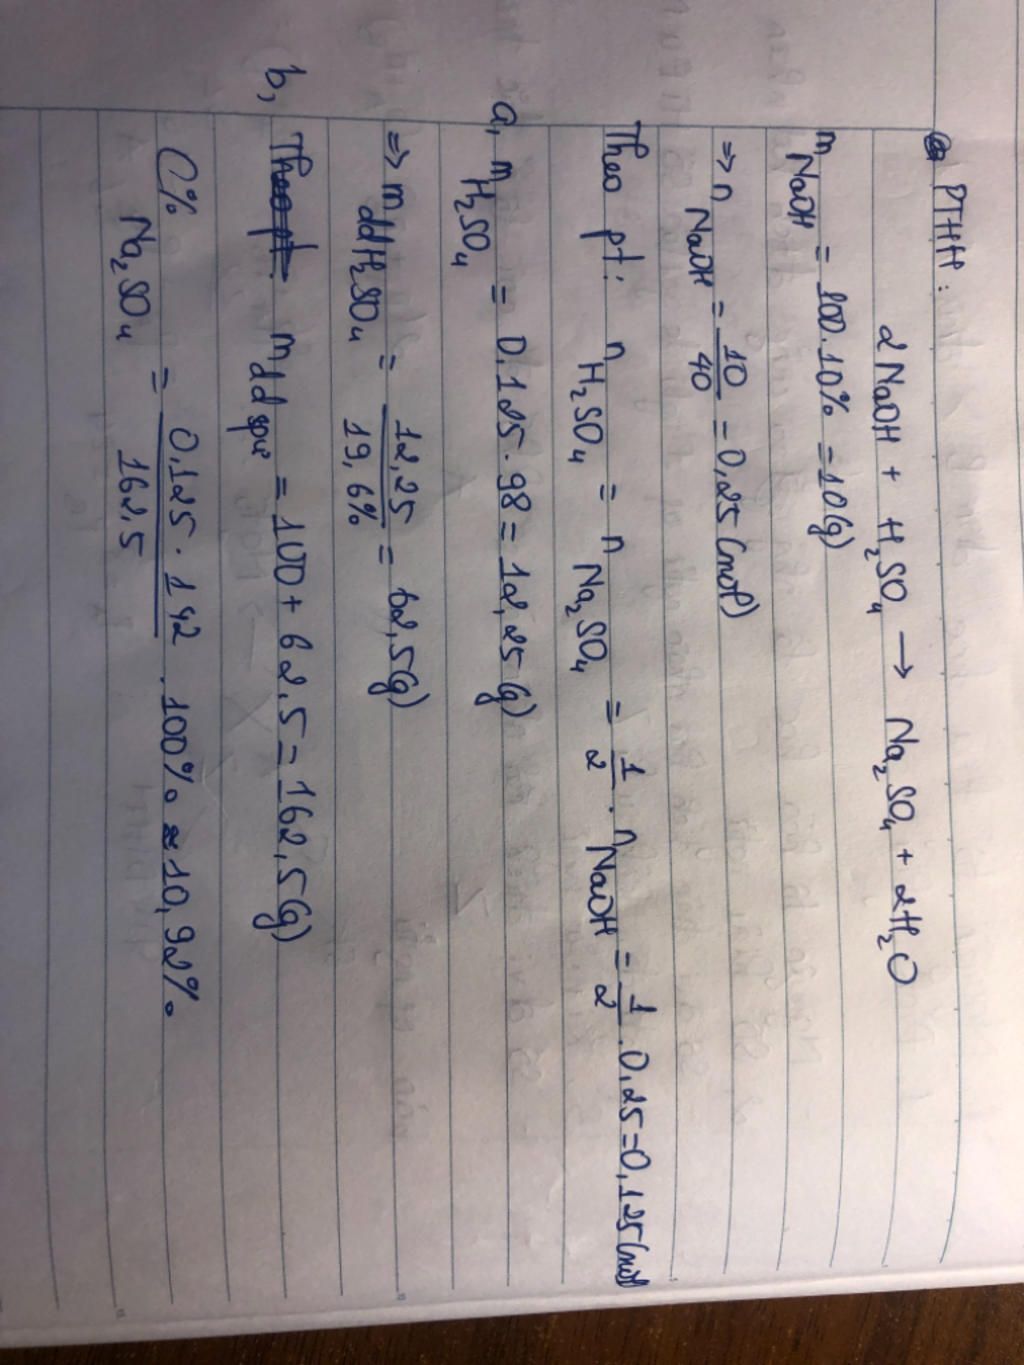 PTHH:
2NaOH + H₂SO₄ → Na₂SO₄ + 2H₂O
m NaOH = 100.10% = 10(g)
=> n NaOH = 10/40 = 0,25 (mol)
Theo pt: n H₂SO₄ = n Na₂SO₄ = 1/2 . n NaOH = 1/2 . 0,25 = 0,125 (mol)
a, m H₂SO₄ = 0,125 . 98 = 12,25 (g)
=> m dd H₂SO₄ = 12,25/19,6% = 62,5(g)
b, Theo pt: m dd spư = 100 + 62,5 = 162,5(g)
C% Na₂SO₄ = 0,125 . 142/162,5 . 100% ≈ 10,92%